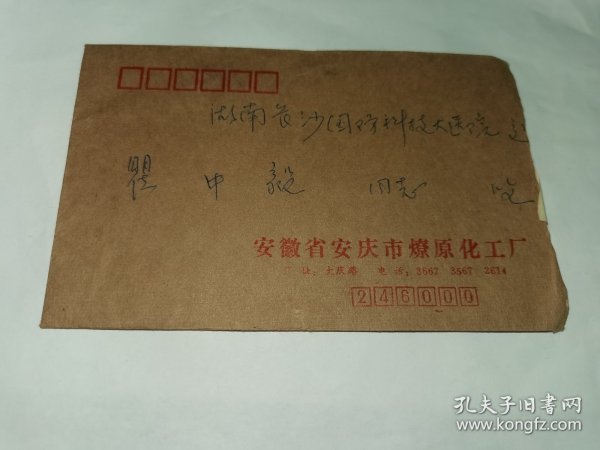 湖南长沙国防科技大医院
瞿中毅 同志 收
安徽省安庆市燎原化工厂
厂址：大庆路 电话：3567 3567 2614
246000
孔夫子旧书网
www.kongfz.com